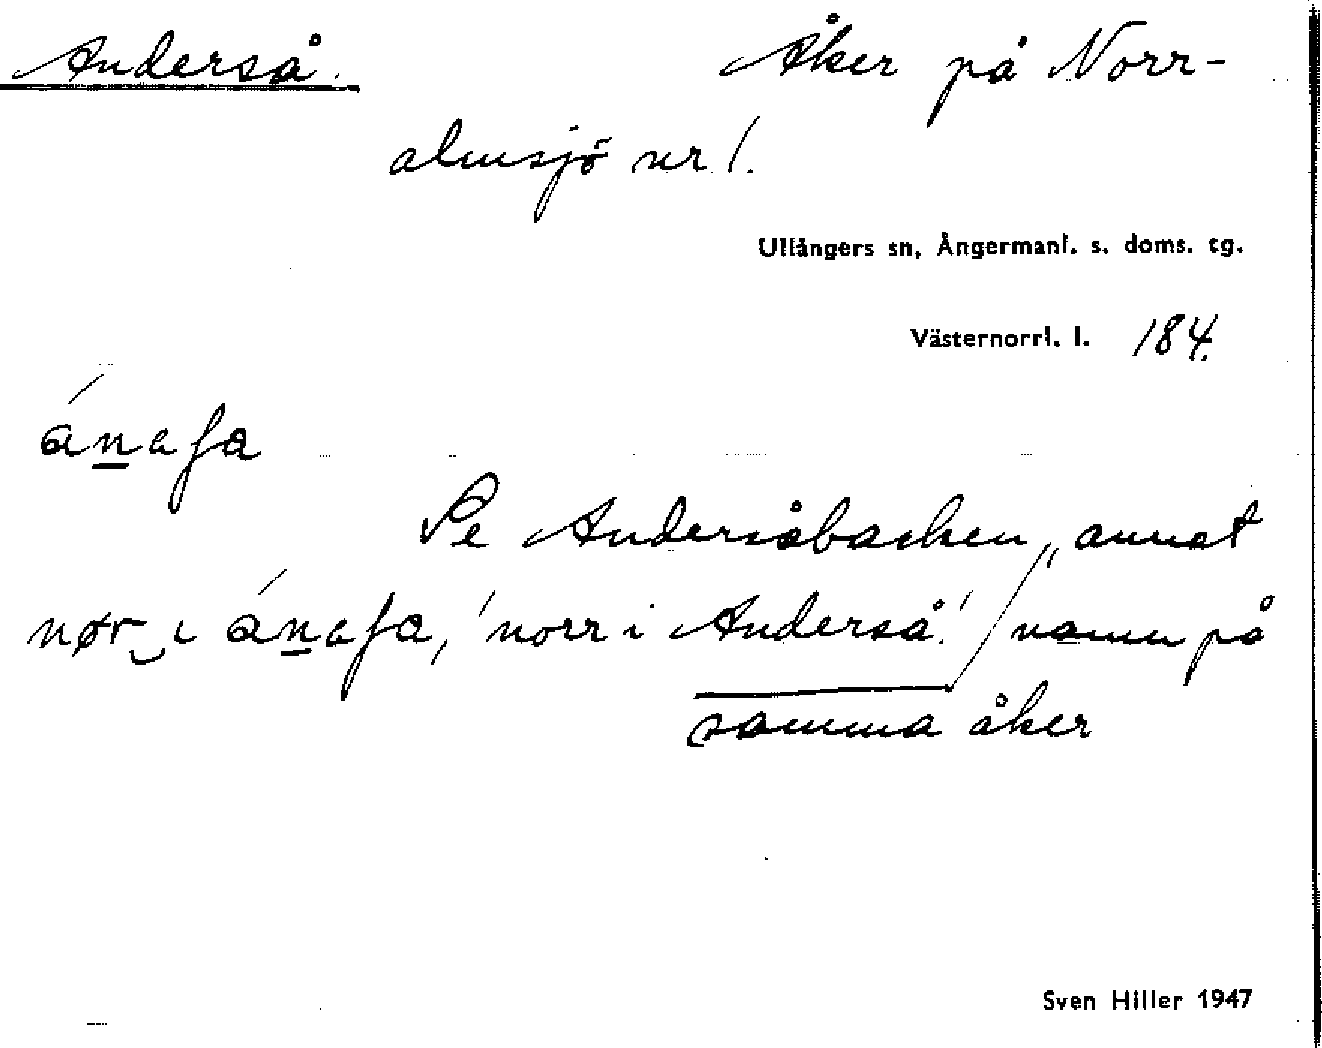 Anderså. Åker på Norr-
almsjö nr 1.
Ullångers sn, Ångermanl. s. doms. tg.
Västernorrl. l. 184.
ánaʃa
Se Andersåbacken, annat
nør i ánaʃa, 'norr i Anderså.' namn på
samma åker
Sven Hiller 1947